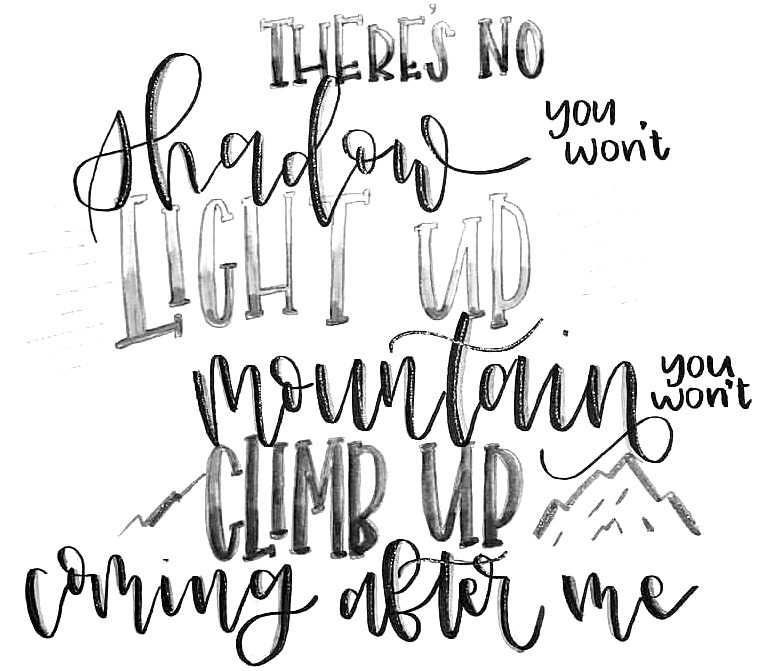 THERE'S NO
shadow you won't
LIGHT UP
mountain you won't
CLIMB UP
coming after me